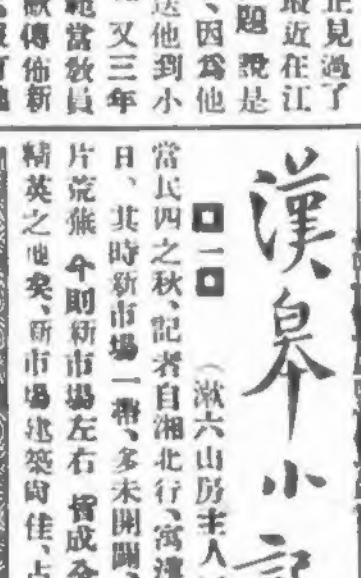 正見過了
最近在江
題 說是
、因爲他
送他到小
又三年
範當敎員
歡傳佈新
漢皋小記
一
（漱六山房主人
當民四之秋、記者自湘北行、寓漢
日、其時新市場一帶、多未開闢、
片荒蕪 今則新市場左右 皆成全
精英之地矣、新市場建築尙佳、占